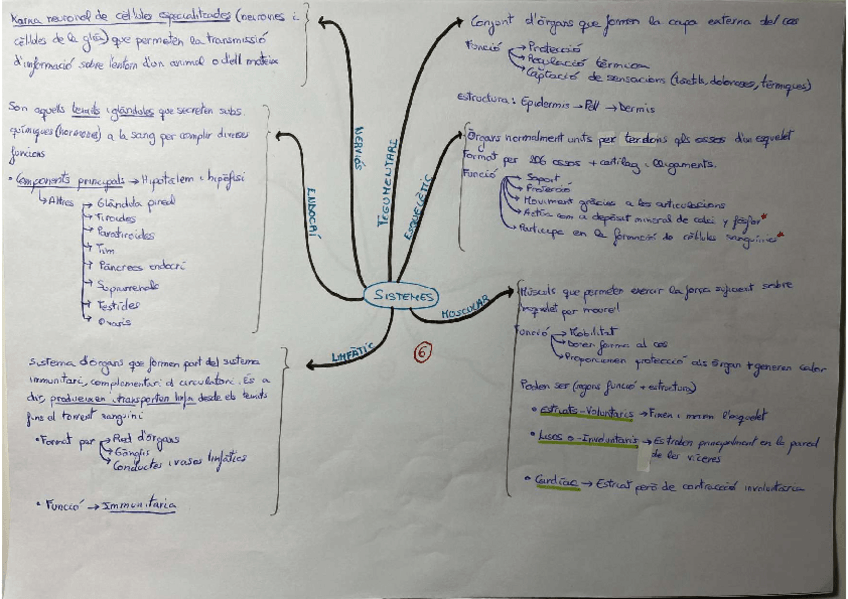 Xarxa neuronal de cèl·lules especialitzades (neurones i
cèl·lules de la glia) que permeten la transmissió
d'informació sobre l'entorn d'un animal o d'ell mateix
NERVIÓS
Son aquells teixits i glàndules que secreten subs.
químiques (hormones) a la sang per complir diverses
funcions
• Components principals → Hipotàlem i hipòfisi
Altres → Glàndula pineal
Tiroides
Paratiroides
Tim
Pàncrees endocrí
Suprarrenals
Testicles
Ovaris
ENDOCRÍ
Sistema d'òrgans que formen part del sistema
immunitari, complementari al circulatori. És a
dir, produeixen i transporten limfa desde els teixits
fins al torrent sanguini
• Format per → Red d'òrgans
Ganglis
Conductes i vasos limfàtics
• Funció → Immunitaria
LIMFÀTIC
SISTEMES
6
TEGUMENTARI
Conjunt d'òrgans que formen la capa externa del cos
Funció → Protecció
Regulació tèrmica
Captació de sensacions (tactils, doloroses, tèrmiques)
estructura: Epidermis → Pell → Dermis
ESQUELÈTIC
Òrgans normalment units per tendons als ossos d'un esquelet
Format per 206 ossos + cartílag i lligaments.
Funció → Suport
Protecció
Moviment gràcies a les articulacions
Actua com a depòsit mineral de calci y fósfor*
Participa en la formació de cèl·lules sanguinies*
MUSCULAR
Músculs que permeten exercir la força suficient sobre
l'esquelet per moure'l
Funció → Mobilitat
Donen forma al cos
Proporcionen protecció als òrgan + generen calor
Poden ser (segons funció + estructura)
• estriats-Voluntaris → Fixen i mouen l'esquelet
• Lisos o -Involuntaris → Es troben principalment en la pared
de les vísceres
• Cardíac → Estriat però de contracció involuntaria